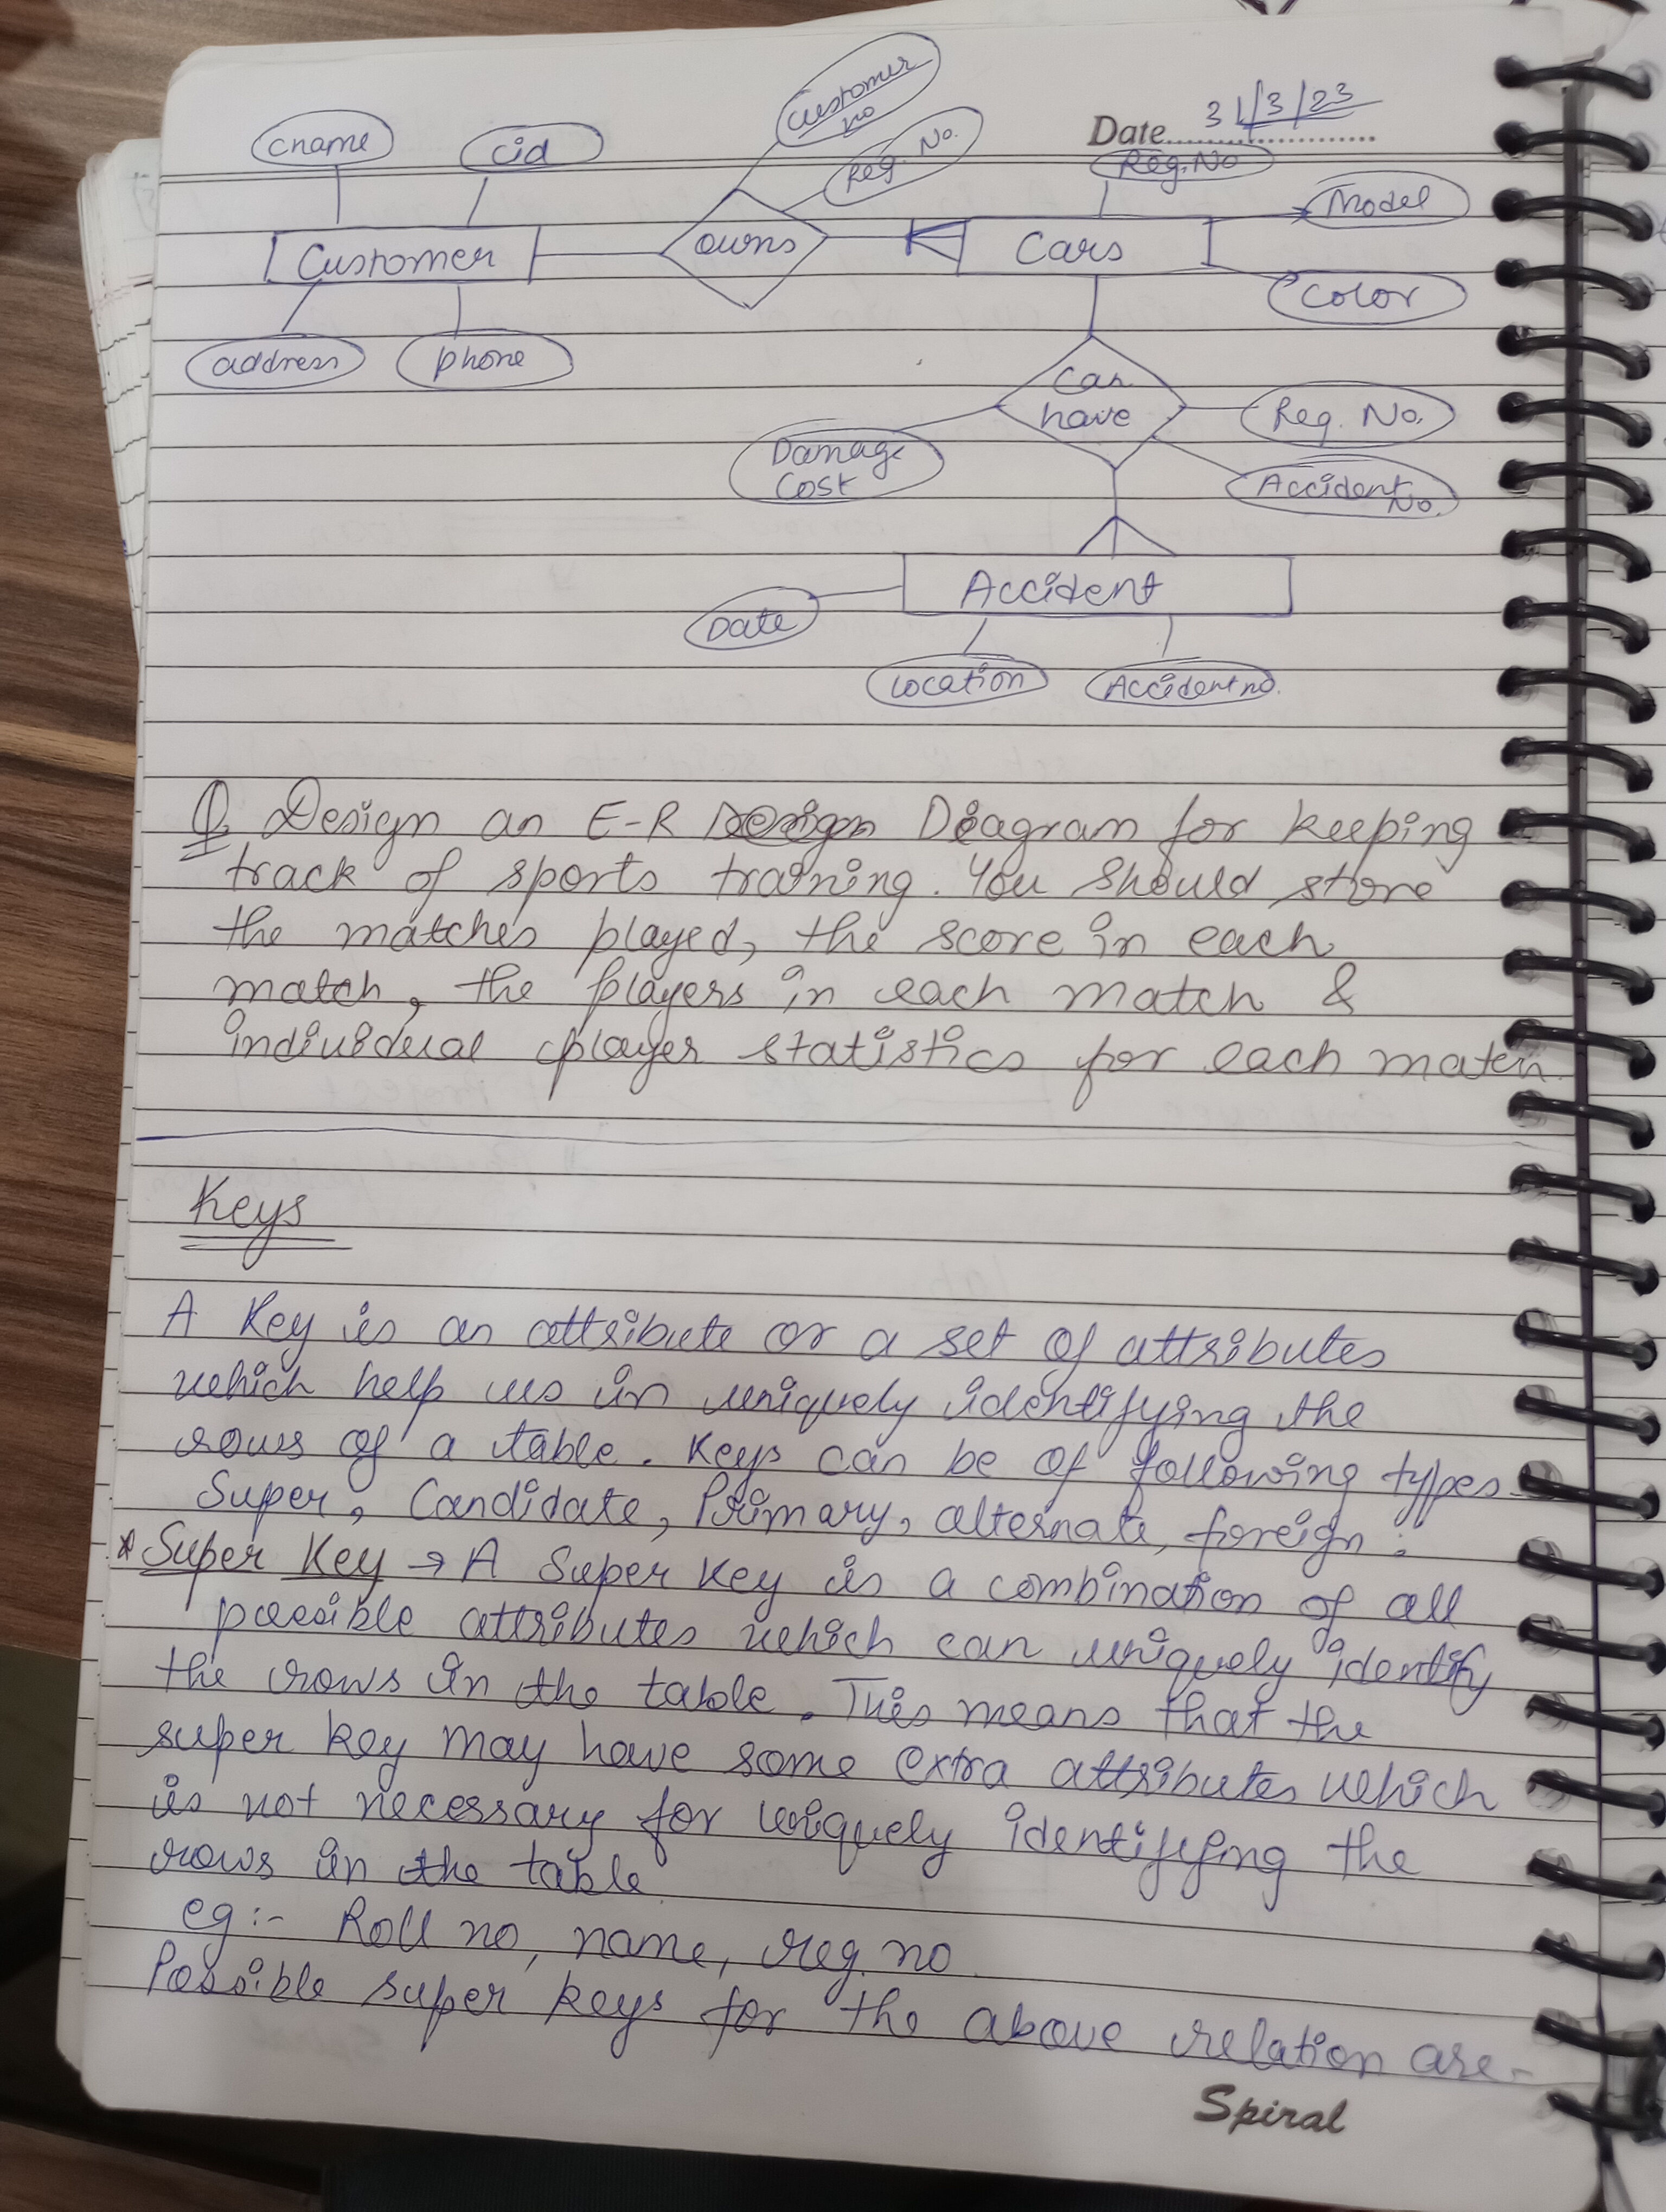 Date 31/3/23
cname
cid
Customer
no
Reg. No.
Reg. No
Model
Customer
owns
Cars
Color
address
phone
Can
have
Reg. No.
Damage
Cost
Accident
No.
Accident
Date
Location
Accident no.
Q Design an E-R Diagram for keeping
track of sports training. You should store
the matches played, the score in each
match, the players in each match &
individual player statistics for each match.
Keys
A Key is an attribute or a set of attributes
which help us in uniquely identifying the
rows of a table. Keys can be of following types -
Super, Candidate, Primary, alternate, foreign :
* Super Key → A Super Key is a combination of all
possible attributes which can uniquely identify
the rows in the table. This means that the
super key may have some extra attributes which
is not necessary for uniquely identifying the
rows in the table.
eg :- Roll no, name, reg. no.
Possible super keys for the above relation are -
Spiral